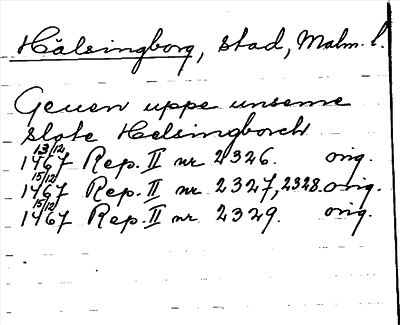 Hälsingborg, stad, Malm. l.
Geuen uppe unseme
slote Helsingborch
13/12
1467 Rep. II nr 2326. orig.
15/12
1467 Rep. II nr 2327, 2328. orig.
15/12
1467 Rep. II nr 2329. orig.